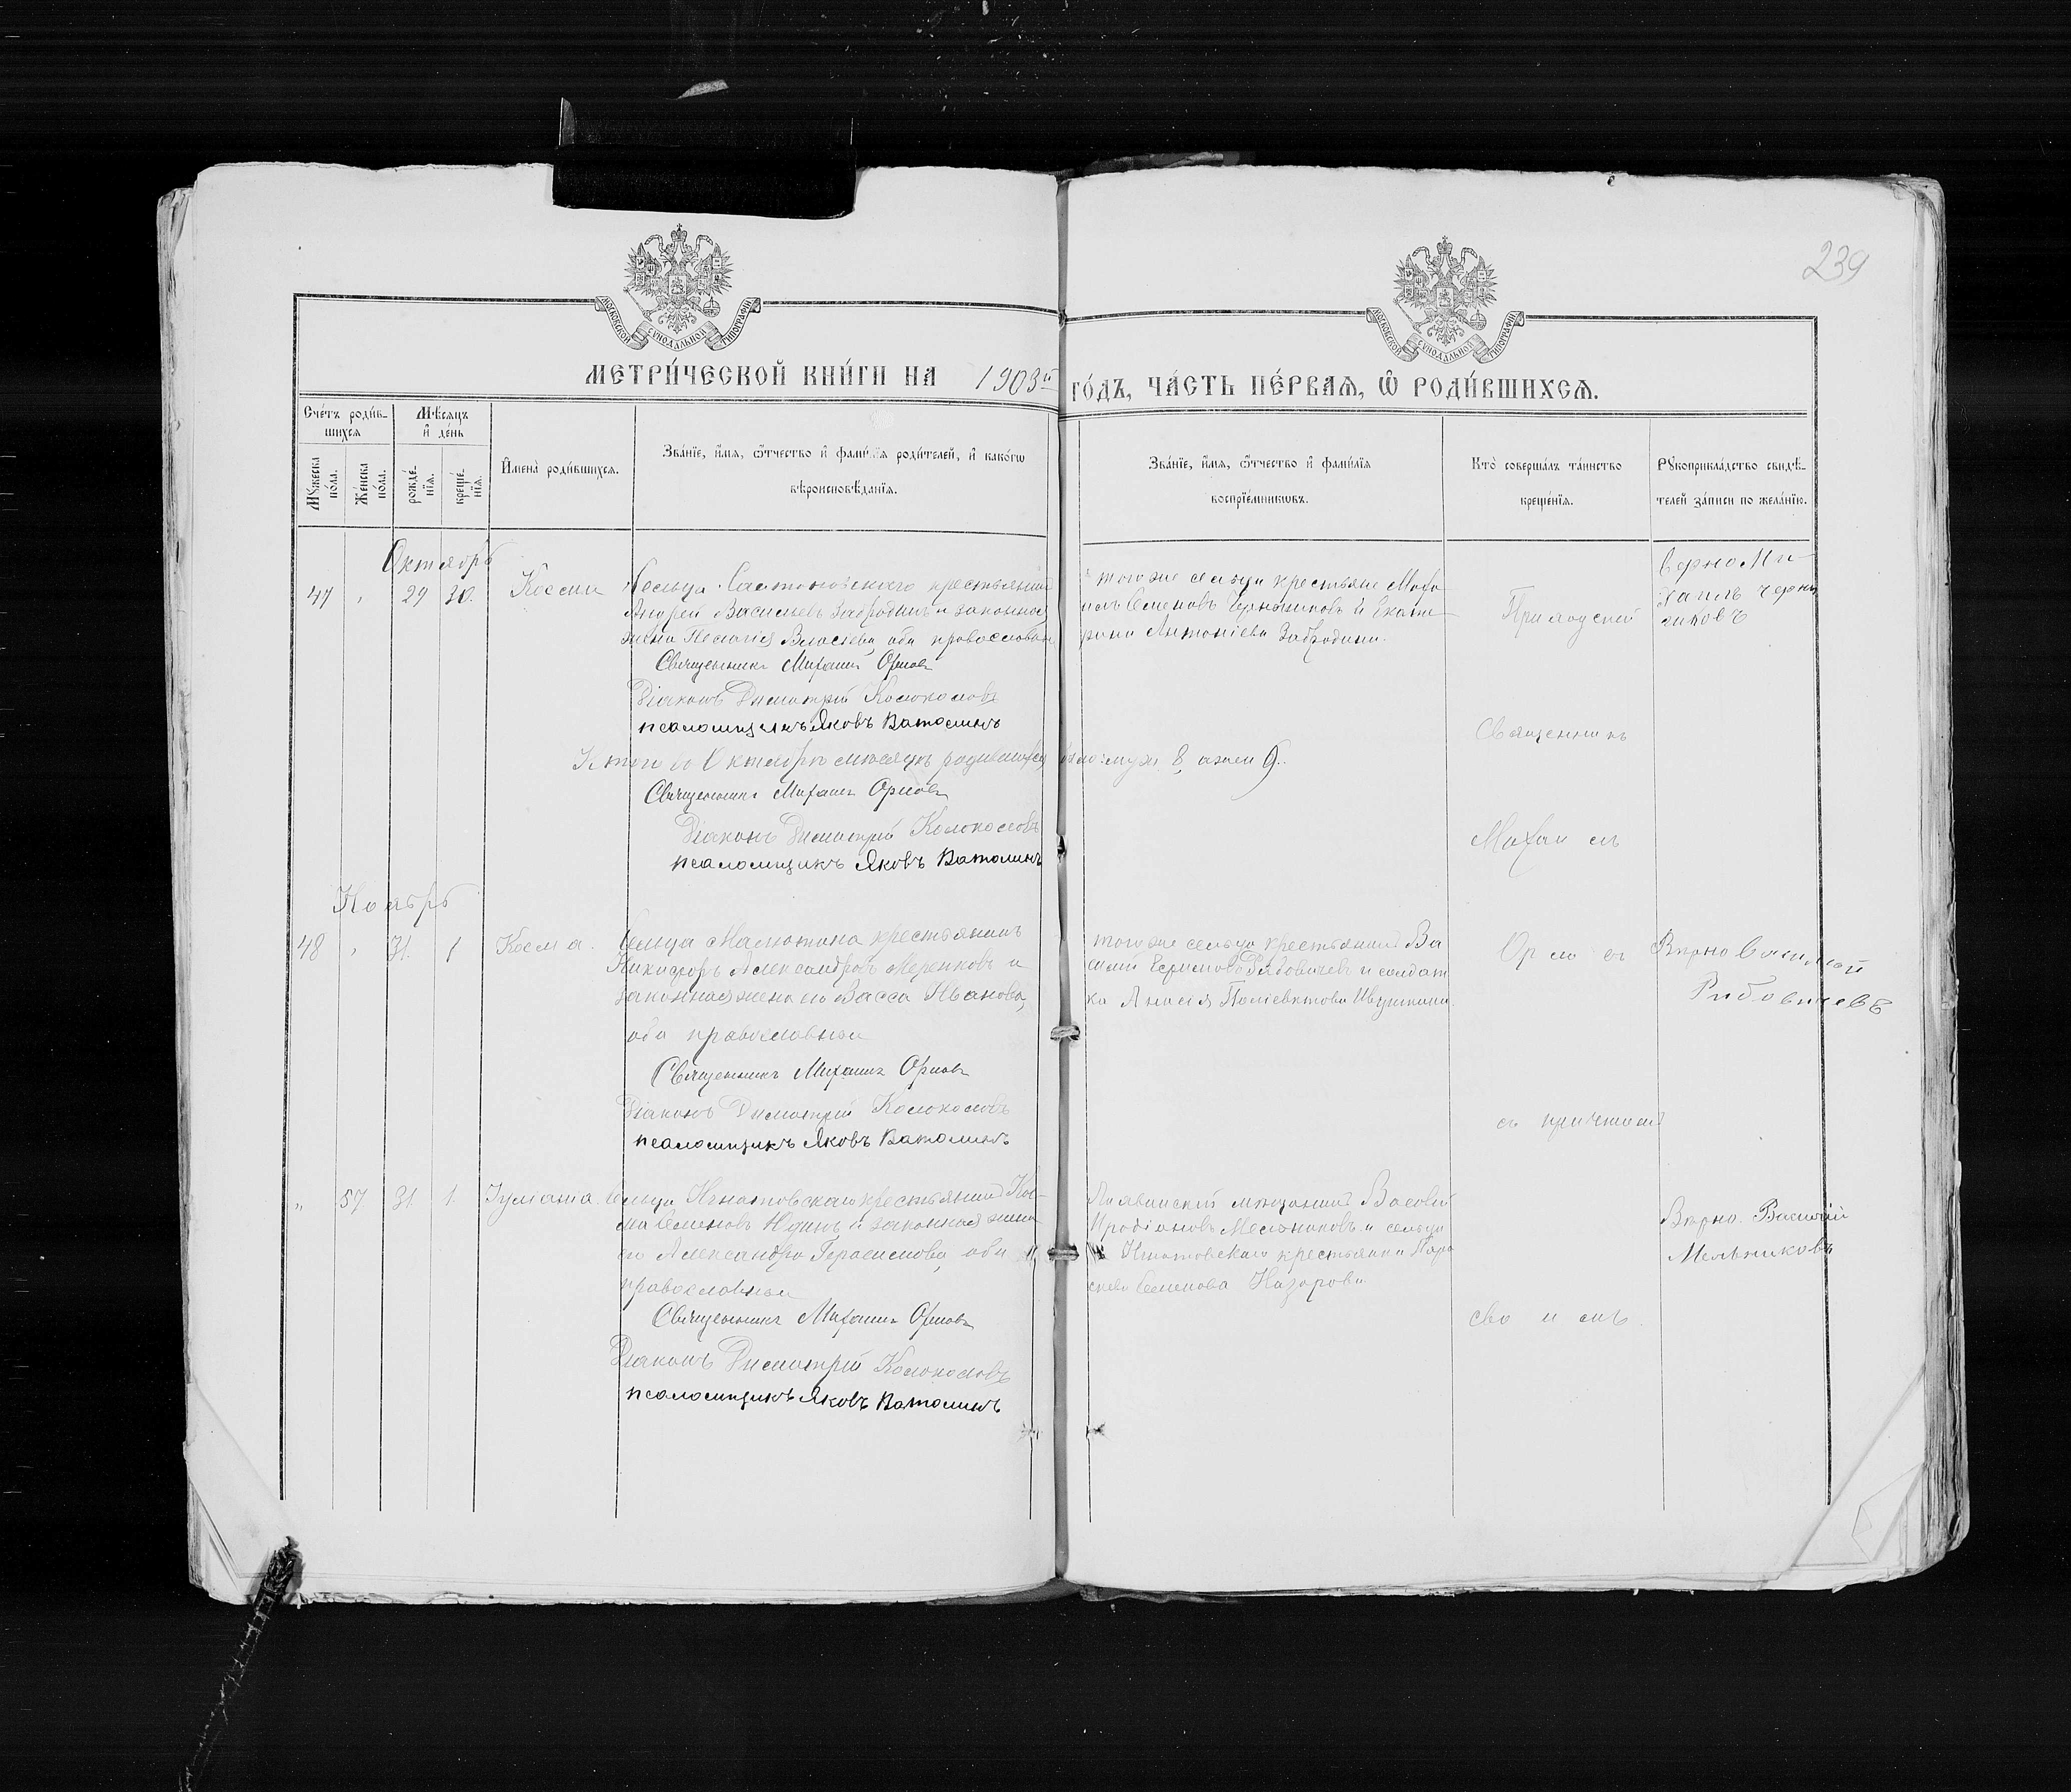 239
МОСКОВСКОЙ СѴНОДАЛЬНОЙ ТИПОГРАФІИ
МОСКОВСКОЙ СѴНОДАЛЬНОЙ ТИПОГРАФІИ
МЕТРИ́ЧЕСКОЙ КНИ́ГИ НА 1903й ГО́ДЪ, ЧА́СТЬ ПЕ́РВАЯ, Ѡ РОДИ́ВШИХСЯ.
Сче́тъ роди́в-
шихся
Мѣ́сяцъ
и де́нь
Мꙋ́жеска по́ла.
Же́нска по́ла.
рожде́-нїя.
креще́-нїя.
Имена̀ роди́вшихся.
Зва́нїе, и́мя, ѻ́тчество и фами́лїя роди́телей, и како́гѡ
вѣроисповѣ́данїя.
Зва́нїе, и́мя, ѻ́тчество и фами́лїя
воспрїе́мникѡвъ.
Кто̀ соверша́лъ та́инство
креще́нїя.
Рꙋкоприкла́дство свидѣ́-
телей за́писи по жела́нїю.
Октябрь
47 " 29 30. Косма
Сельца крестьянинъ
Андрей Васильевъ Забродинъ и законная
жена Пелагія Власіева, оба православныи
Священникъ Михаилъ Орловъ
Діаконъ Димитрій Колоколовъ
псаломщикъ Яковъ Ватолинъ
тогоже сельца крестьяне Миха
илъ Семеновъ и Екате
рина Антоніева Забродина.
Приходской
Верно Ми
хаилъ Черни
ковъ
Священникъ
Итого въ Октябрѣ мѣсяцѣ родившихся было: муж. 8, а жен 9.
Священникъ Михаилъ Орловъ
Діаконъ Димитрій Колоколовъ
псаломщикъ Яковъ Ватолинъ
Михаилъ
Ноябрь
48 " 31. 1 Косма.
Сельца Малютина крестьянинъ
Никифоръ Александровъ Меренковъ и
законная жена его Васса Иванова,
оба православныи
Священникъ Михаилъ Орловъ
Діаконъ Димитрій Колоколовъ
псаломщикъ Яковъ Ватолинъ
тогоже сельца крестьянинъ Ва
силій и солдат
ка
Орловъ
Вѣрно Василій
Рибовичевъ
съ причтомъ
" 57 31. 1. Іуліанія.
Сельца Игнатовскаго крестьянинъ Кос-
ма Семеновъ Юдинъ и законная жена
его Александра Герасимова, оба
православныи
Священникъ Михаилъ Орловъ
Діаконъ Димитрій Колоколовъ
псаломщикъ Яковъ Ватолинъ
мѣщанинъ Василій
Иродіоновъ Мельниковъ и сельца
Игнатовскаго крестьянка Пара
скева Семенова Назарова
Вѣрно. Василій
Мельниковъ
своимъ.